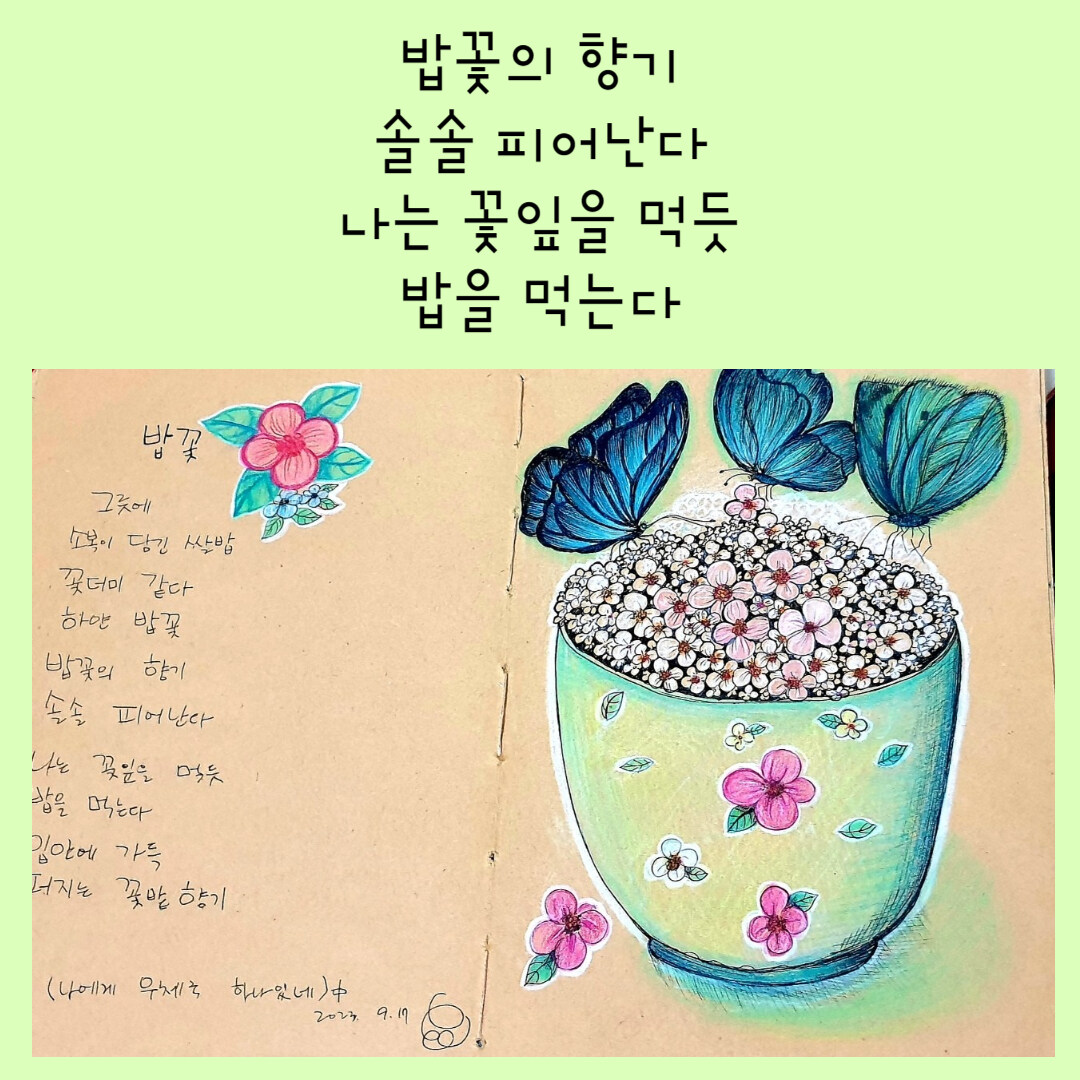 밥꽃의 향기
솔솔 피어난다
나는 꽃잎을 먹듯
밥을 먹는다
밥꽃
그릇에
소복이 담긴 쌀밥
꽃더미 같다
하얀 밥꽃
밥꽃의 향기
솔솔 피어난다
나는 꽃잎을 먹듯
밥을 먹는다
입안에 가득
퍼지는 꽃밭 향기
(나에게 우체국 하나 있네)中
2023. 9. 17